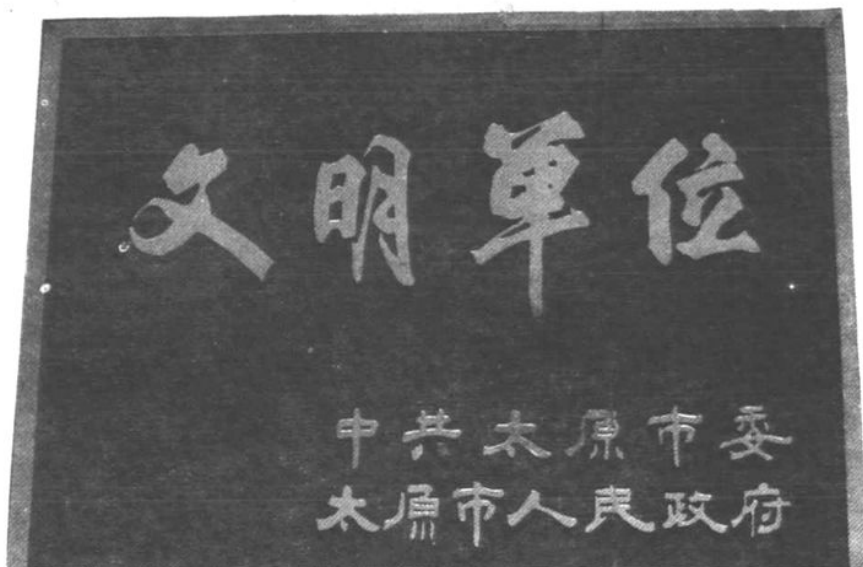 文明单位
中共太原市委
太原市人民政府